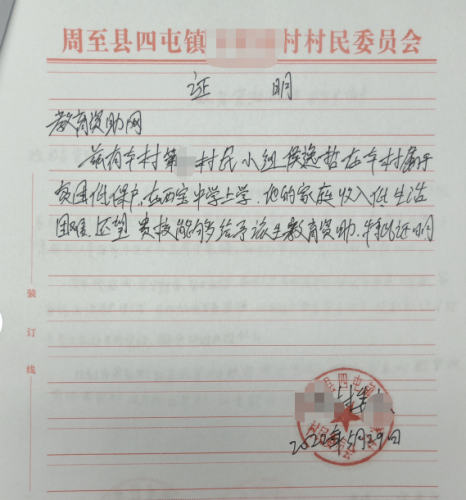 周至县四屯镇 村村民委员会
证 明
教育资助网
兹有本村第 村民小组侯逸哲在本村属于
贫困低保户,在西宝中学上学,他的家庭收入低生活
困难,还望 贵校能够多给予该生教育资助.特此证明
装
订
线
县四屯镇
村民委员会
2022年5月29日